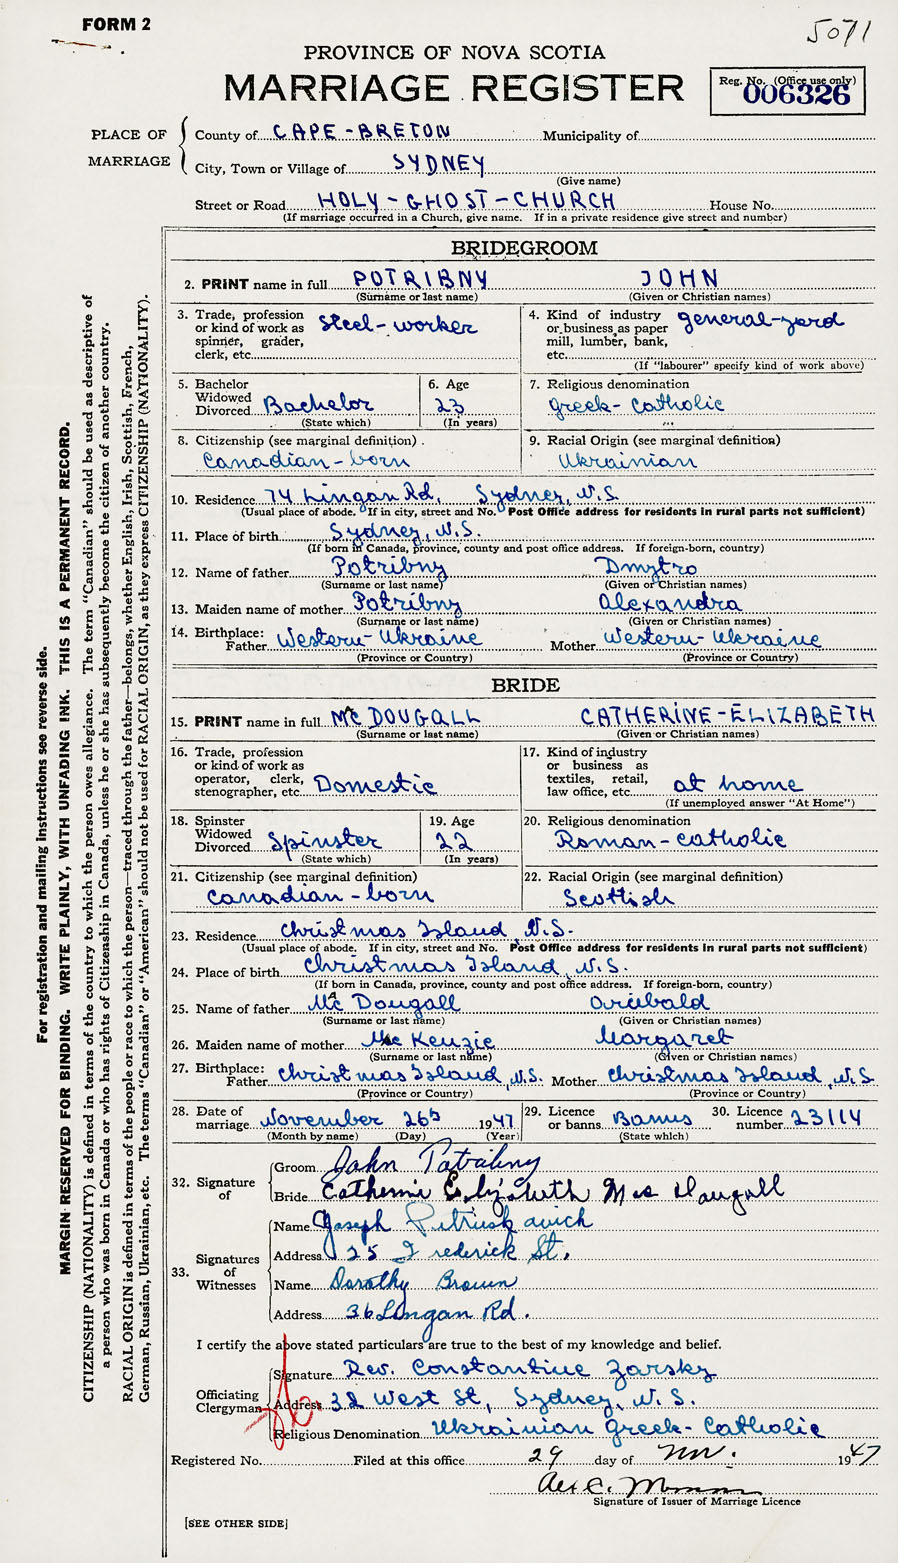 FORM 2
5071
PROVINCE OF NOVA SCOTIA
MARRIAGE REGISTER
Reg. No. (Office use only)
006326
PLACE OF MARRIAGE
County of CAPE-BRETON Municipality of
City, Town or Village of SYDNEY
(Give name)
Street or Road HOLY-GHOST-CHURCH House No.
(If marriage occurred in a Church, give name. If in a private residence give street and number)
BRIDEGROOM
2. PRINT name in full POTRIBNY JOHN
(Surname or last name) (Given or Christian names)
3. Trade, profession or kind of work as spinner, grader, clerk, etc. Steel-worker
4. Kind of industry or business as paper mill, lumber, bank, etc. general-yard
(If "labourer" specify kind of work above)
5. Bachelor Widowed Divorced Bachelor
(State which)
6. Age 23
(In years)
7. Religious denomination
greek-catholic
8. Citizenship (see marginal definition)
Canadian-born
9. Racial Origin (see marginal definition)
Ukrainian
10. Residence 74 Lingan Rd, Sydney, N.S.
(Usual place of abode. If in city, street and No. Post Office address for residents in rural parts not sufficient)
11. Place of birth Sydney, N.S.
(If born in Canada, province, county and post office address. If foreign-born, country)
12. Name of father Potribny Dmytro
(Surname or last name) (Given or Christian names)
13. Maiden name of mother Potribny Alexandra
(Surname or last name) (Given or Christian names)
14. Birthplace: Father Western-Ukraine Mother Western-Ukraine
(Province or Country) (Province or Country)
BRIDE
15. PRINT name in full McDOUGALL CATHERINE-ELIZABETH
(Surname or last name) (Given or Christian names)
16. Trade, profession or kind of work as operator, clerk, stenographer, etc. Domestic
17. Kind of industry or business as textiles, retail, law office, etc. at home
(If unemployed answer "At Home")
18. Spinster Widowed Divorced Spinster
(State which)
19. Age 22
(In years)
20. Religious denomination
Roman-catholic
21. Citizenship (see marginal definition)
Canadian-born
22. Racial Origin (see marginal definition)
Scottish
23. Residence Christmas Island, N.S.
(Usual place of abode. If in city, street and No. Post Office address for residents in rural parts not sufficient)
24. Place of birth Christmas Island, N.S.
(If born in Canada, province, county and post office address. If foreign-born, country)
25. Name of father McDougall Archibald
(Surname or last name) (Given or Christian names)
26. Maiden name of mother McKenzie Margaret
(Surname or last name) (Given or Christian names)
27. Birthplace: Father Christmas Island, N.S. Mother Christmas Island, N.S.
(Province or Country) (Province or Country)
28. Date of marriage November 26 1947
(Month by name) (Day) (Year)
29. Licence or banns Banns
(State which)
30. Licence number 23114
32. Signature of
Groom John Potribny
Bride Catherine Elizabeth MacDougall
33. Signatures of Witnesses
Name Joseph
Address 25 Frederick St.
Name Dorothy Brown
Address 36 Lingan Rd.
I certify the above stated particulars are true to the best of my knowledge and belief.
Officiating Clergyman
Signature Rev. Constantine Zarsky
Address 32 West St, Sydney, N.S.
Religious Denomination Ukrainian Greek-Catholic
Registered No. Filed at this office 29 day of Nov. 1947
Signature of Issuer of Marriage Licence
[SEE OTHER SIDE]
For registration and mailing instructions see reverse side.
MARGIN RESERVED FOR BINDING. WRITE PLAINLY, WITH UNFADING INK. THIS IS A PERMANENT RECORD.
CITIZENSHIP (NATIONALITY) is defined in terms of the country to which the person owes allegiance. The term "Canadian" should be used as descriptive of
a person who was born in Canada or who has rights of Citizenship in Canada, unless he or she has subsequently become the citizen of another country.
RACIAL ORIGIN is defined in terms of the people or race to which the person—traced through the father—belongs, whether English, Irish, Scottish, French,
German, Russian, Ukrainian, etc. The terms "Canadian" or "American" should not be used for RACIAL ORIGIN, as they express CITIZENSHIP (NATIONALITY).